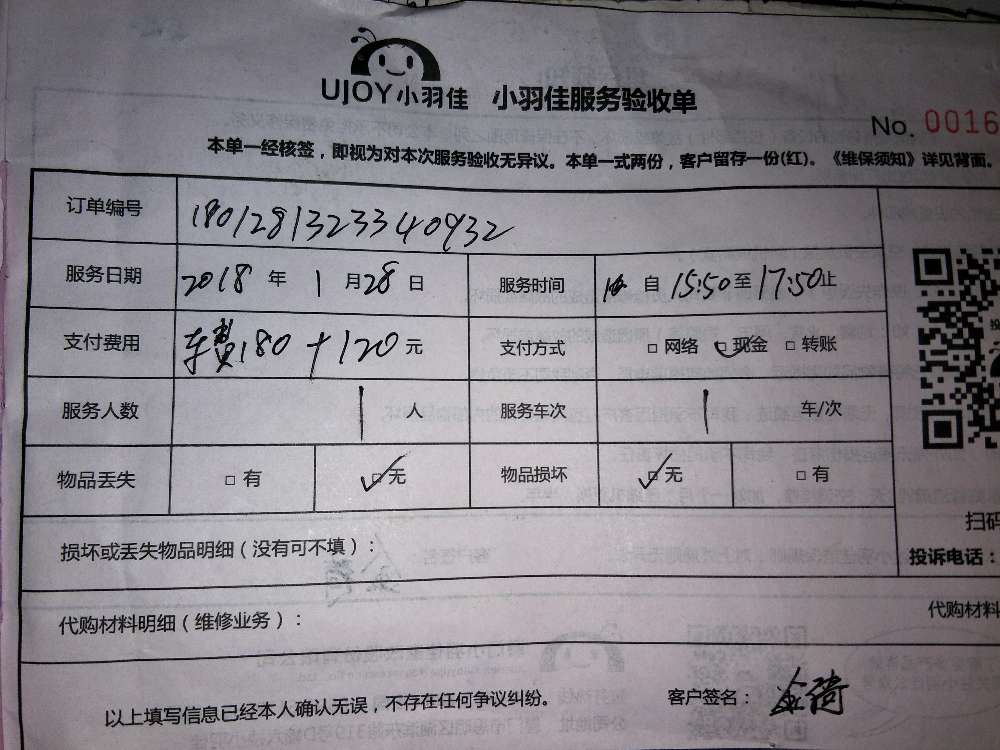 UJOY小羽佳 小羽佳服务验收单
No. 0016
本单一经核签，即视为对本次服务验收无异议。本单一式两份，客户留存一份(红)。《维保须知》详见背面。
订单编号 18012813233340932
服务日期 2018 年 1 月 28 日 服务时间 自 15:50 至 17:50 止
支付费用 车费180+120 元 支付方式 □ 网络 □ 现金 □ 转账
服务人数 1 人 服务车次 1 车/次
物品丢失 □ 有 □ 无 物品损坏 □ 无 □ 有
扫码
损坏或丢失物品明细（没有可不填）：
投诉电话：
代购材料明细（维修业务）：
代购材料
以上填写信息已经本人确认无误，不存在任何争议纠纷。 客户签名：